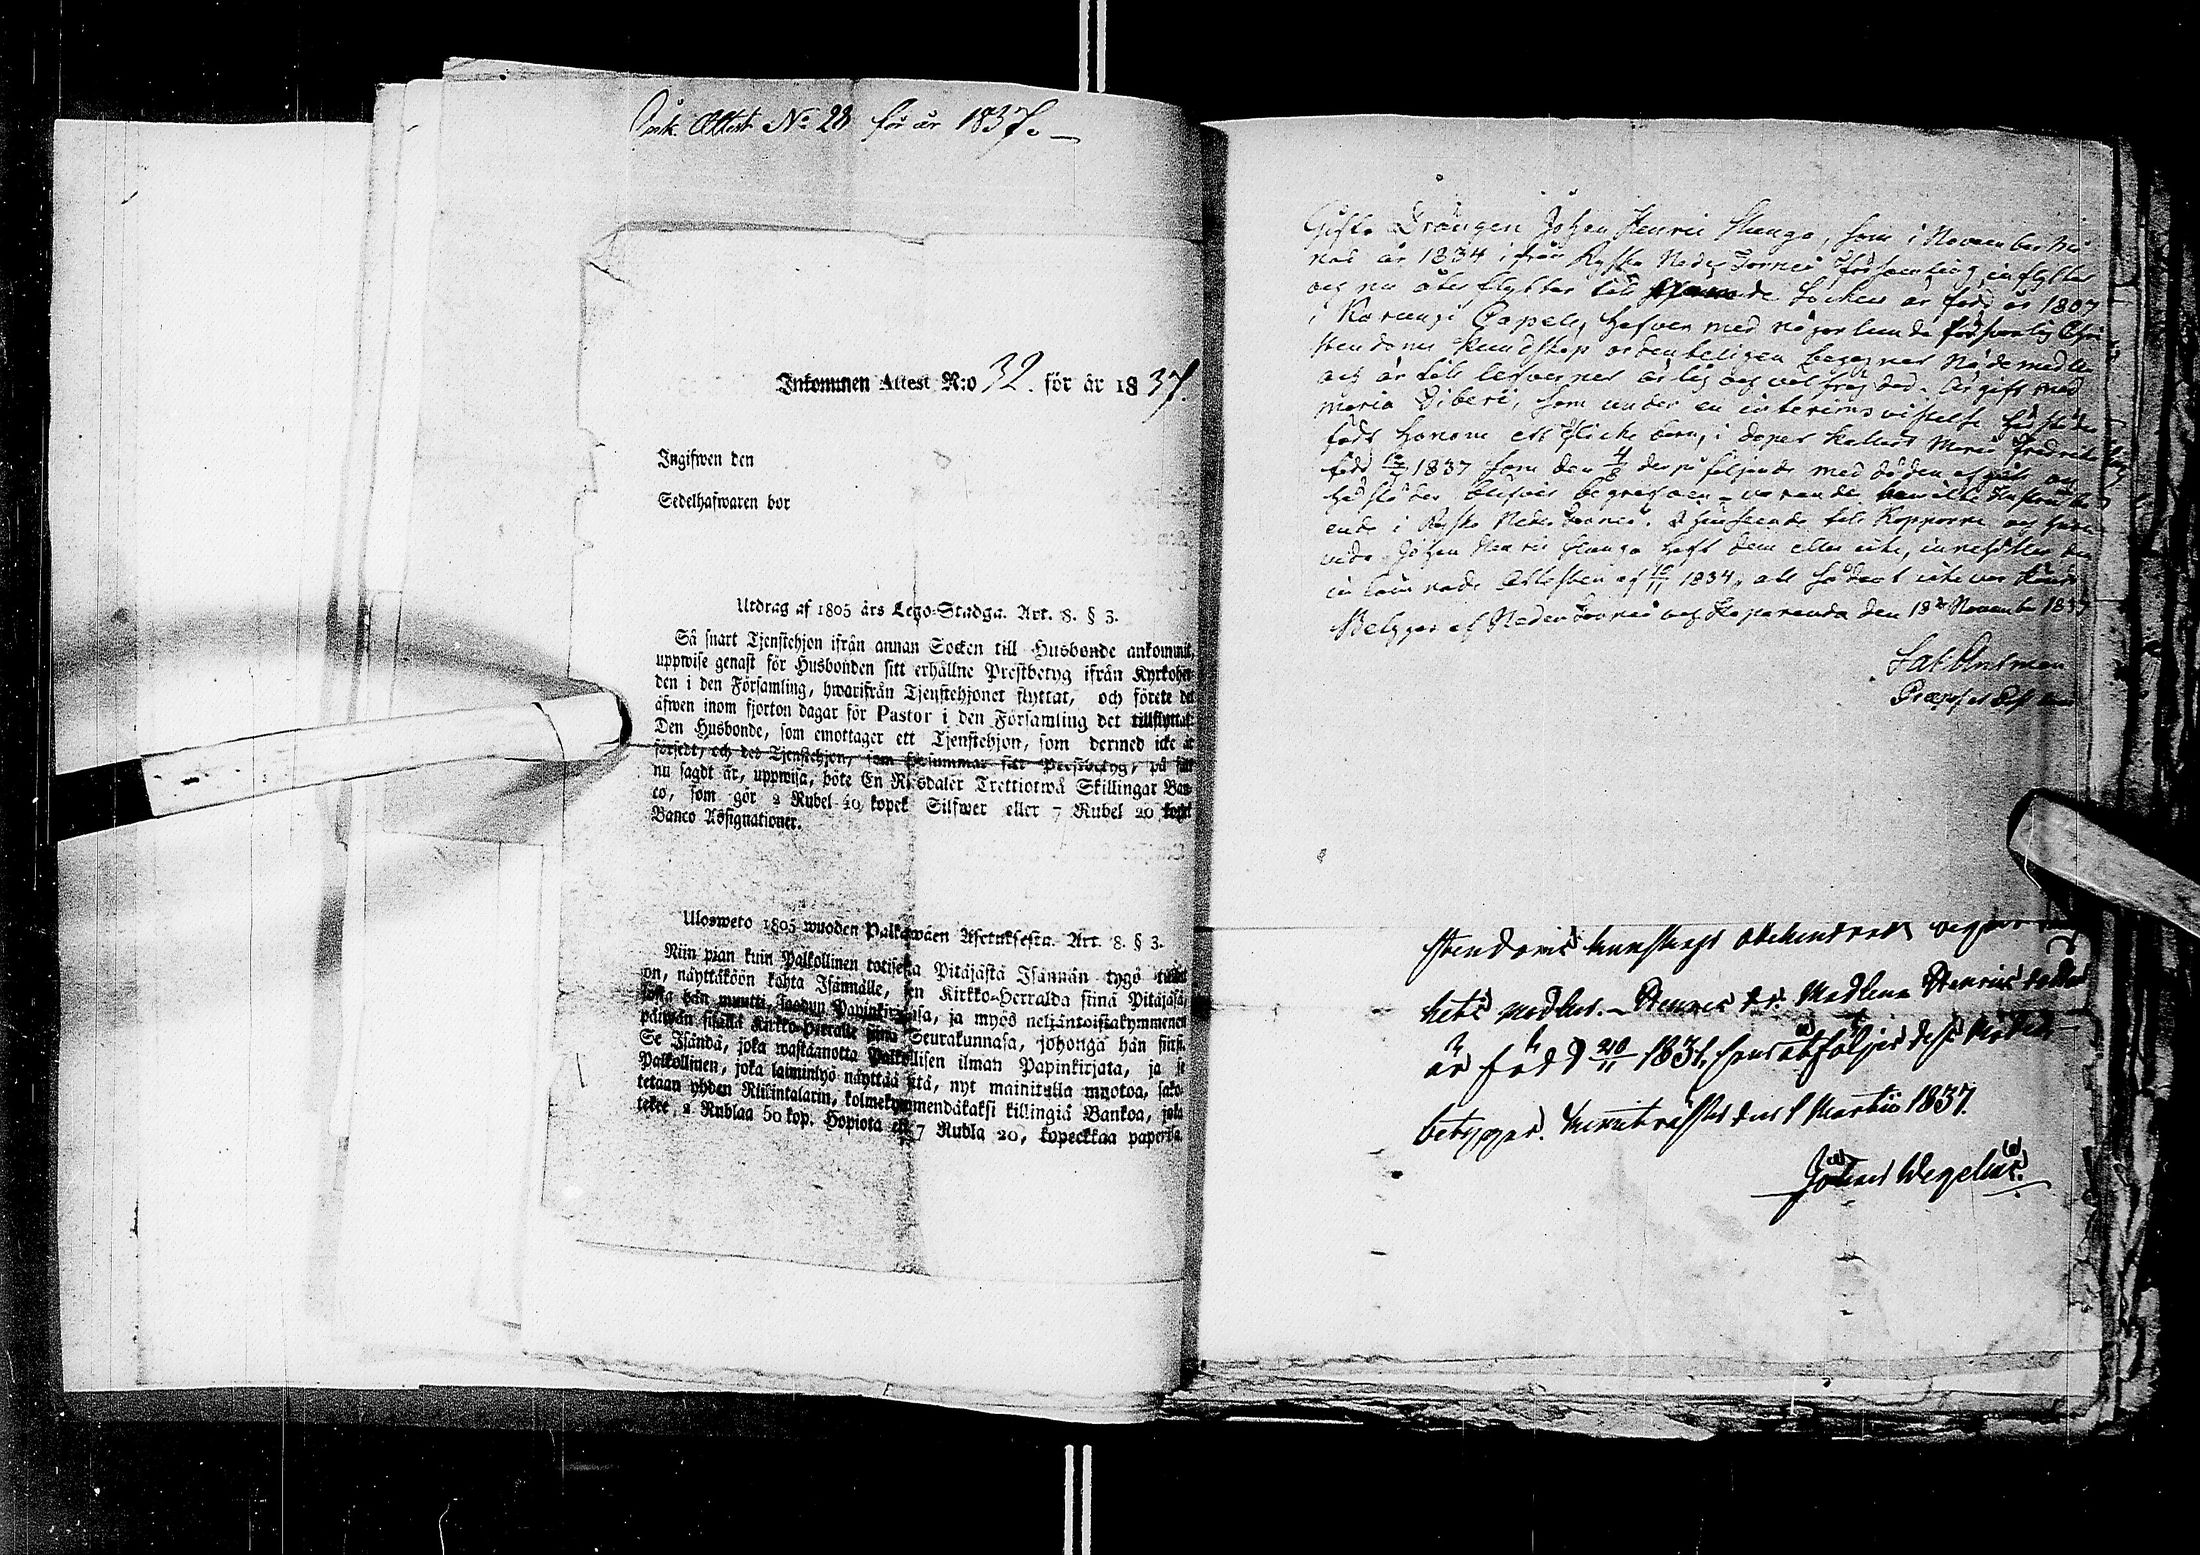 Ink. Attest No 28 för år 1837.
Inkommen Attest N:o 32. för år 1837.
Ingifwen den
Sedelhafwaren bor
Utdrag af 1805 års Lego-Stadga. Art. 8. § 3.
Så snart Tjenstehjon ifrån annan Socken till Husbonde ankommit,
uppwise genast för Husbonden sitt erhållne Prestbetyg ifrån Kyrkoher-
den i den Församling, hwarifrån Tjenstehjonet flyttat, och förete det
äfwen inom fjorton dagar för Pastor i den Församling det tillflyttat.
Den Husbonde, som emottager ett Tjenstehjon, som dermed icke är
försedt, och det Tjenstehjon, som försummar sitt Prestbetyg, på sätt
nu sagdt är, uppwisa, böte En Riksdaler Trettiotwå Skillingar Ban-
co, som gör 2 Rubel 40 kopek Silfwer eller 7 Rubel 20 kopek
Banco Assignationer.
Ulosweto 1805 wuoden Palkawäen Asetuksesta. Art. 8. § 3.
Niin pian kuin Palkollinen toisesta Pitäjästä Isännän tygö tullut
on, näyttäköön kohta Isännälle, sen Kirkko-Herralda siinä Pitäjäsä,
josta hän muutti, saadun Papinkirjansa, ja myös neljäntoistakymmenen
päiwän sisällä Kirkko-Herralle siinä Seurakunnasa, johonga hän siirsi.
Se Isändä, joka wastaanotta Palkollisen ilman Papinkirjata, ja se
Palkollinen, joka laiminlyö näyttää sitä, nyt mainitulla muotoa, sako-
tetaan yhden Riikintalarin, kolmekymmendäkaksi killingiä Bankoa, joka
tekee 2 Rublaa 50 kop. Hopiota eli 7 Rubla 20, kopeckkaa paperisa.
Gifta Drängen Johan Henric Stunga, som i November må-
nad år 1834 ifrån Ryska Neder Torneå församling inflyttat
och nu åter flyttar till Socken är född år 1807
i Karungi Capell, hafver med någorlunda försvarlig Chri-
stendoms Kundskap ordenteligen begagnat Nådemedlen
och är till lefvernet ärlig och välfrejdad. Är gift med
Maria Diberi, som under en interims vistelse härstädes
födt honom ett Flicke barn, i dopet kalladt Maria Fredrica
född 1837 som den 4/8 derpå följande med döden afgått och
härstädes blifvit begrafven
ende i Ryska Neder Torneå. I hänseende till Kopporne och huru-
vida Johan Henric Stunga haft dem eller icke, innehåller den
inlämnade Attesten af 1834, att sådant icke var kändt
Betygar af Neder Torneå och Haparanda den 18 November 1837
stendoms kunskap obehindrad begår
hets medlen. Henrics dr. Madlena Henrics dotter
är född 20/11 1831, som åtföljer dess Moder
betygar. den 1 Martii 1837.
Johan Wegelius.